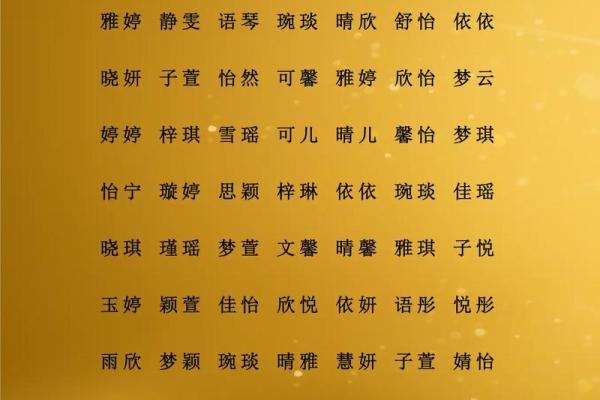 雅婷 静雯 语琴 琬琰 晴欣 舒怡 依依
晓妍 子萱 怡然 可馨 雅婷 欣怡 梦云
婷婷 梓琪 雪瑶 可儿 晴儿 馨怡 梦琪
怡宁 璇婷 思颖 梓琳 依依 琬琰 佳瑶
晓琪 瑾瑶 梦萱 文馨 晴馨 雅琪 子悦
玉婷 颖萱 佳怡 欣悦 依妍 语彤 悦彤
雨欣 梦颖 琬琰 晴雅 慧妍 子萱 婧怡